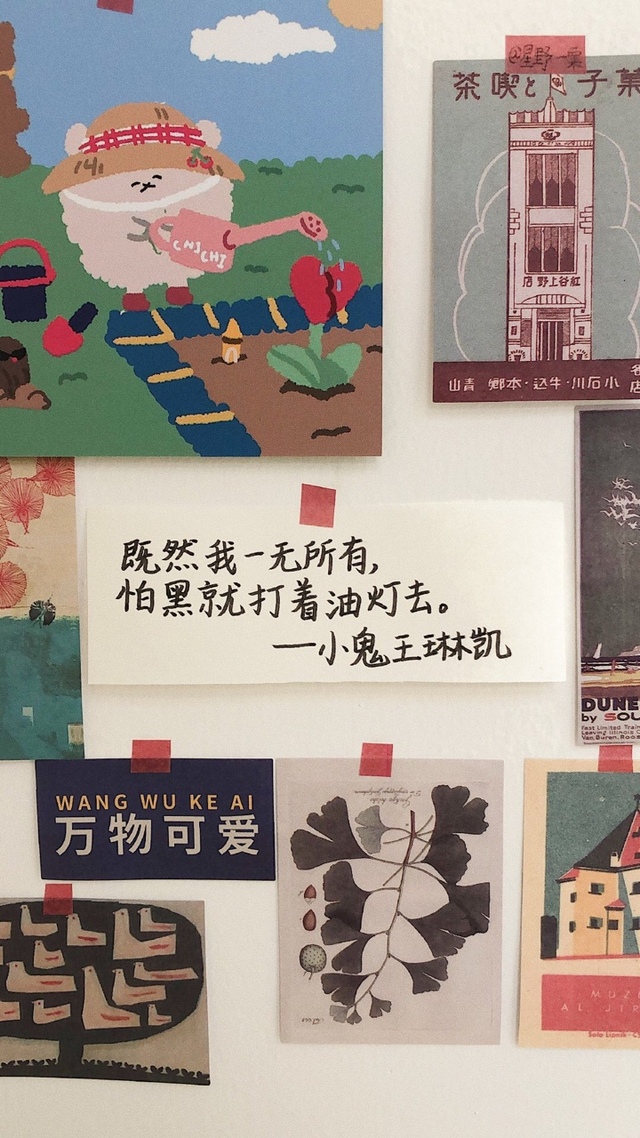 CHICHI
@星野一栗
茶喫と子菓
店野上谷紅
山青・郷本・込牛・川石小
既然我一无所有,
怕黑就打着油灯去。
——小鬼王琳凯
DUNE
by SOU
Fast Limited Train
Leaving Illinois C
Van Buren, Roos
WANG WU KE AI
万物可爱
MUZ